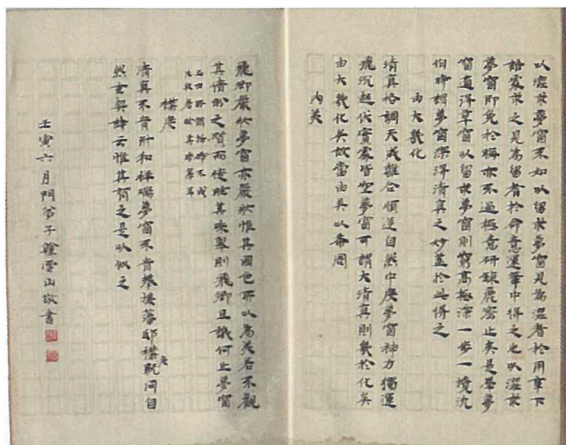 以澀求夢窗不如以留求夢窗見為澀者於用事下
語處求之見為留者於命意運筆中得之也以澀求
夢窗即免於晦亦不過極意研鍊麗密止矣是學夢
窗適得草窗以留求夢窗則窮高極深一步一境沈
伯時謂夢窗深得清真之妙蓋於此得之
由大幾化
清真格調天成離合順逆自然中度夢窗神力獨運
飛沉起伏實處皆空夢窗可謂大清真則幾於化矣
由大幾化矣故當由吳以希周
內美
飛卿嚴妝夢窗亦嚴妝惟其國色所以為美若不觀
其倩盼之質而徒眩其珠翠則飛卿且譏何止夢窗
玉田所謂拆碎不成
片段者眩其珠翠耳
襟度
清真不肯附和祥瑞夢窗不肯攀援藩邸襟度既同自
然玄契詩云惟其有之是以似之
壬寅六月門弟子雲山敬書